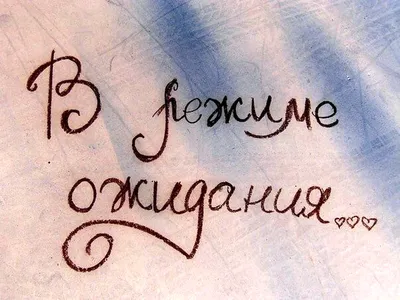 В режиме
ожидания...♡♡♡